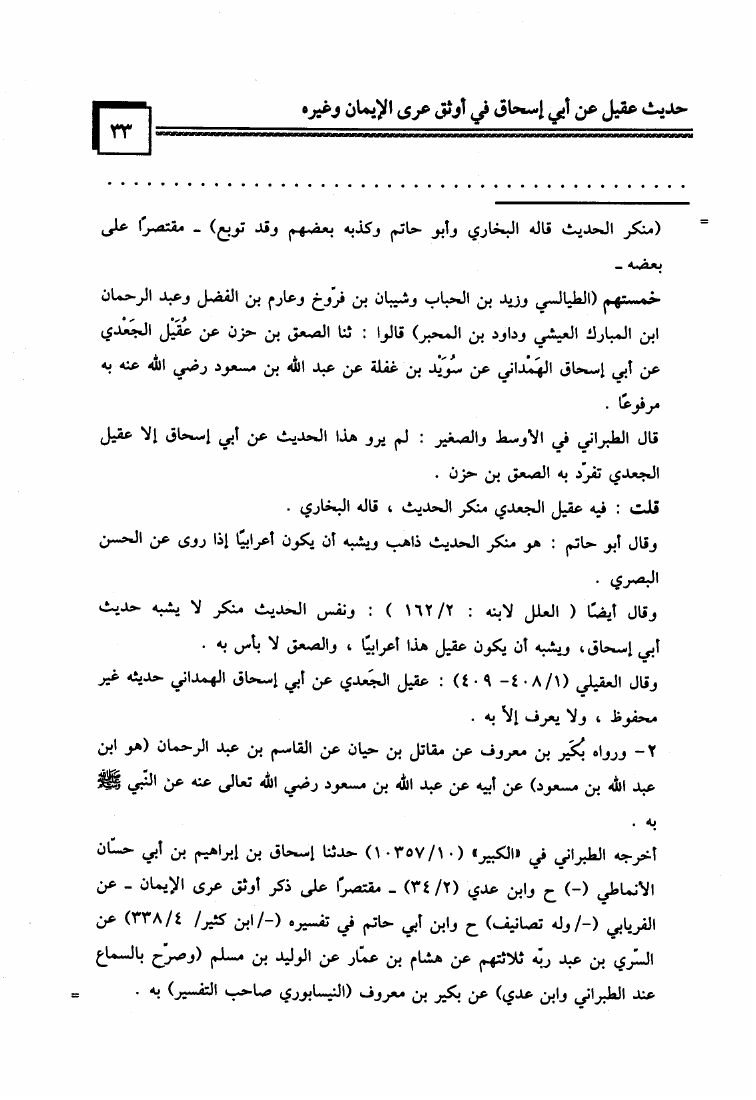 حديث عقيل عن أبي إسحاق في أوثق عرى الإيمان وغيره
٣٣
. . . . . . . . . . . . . . . . . . . . . . . . . . . . . . . . . . . . . . . . . . . .
= (منكر الحديث قاله البخاري وأبو حاتم وكذبه بعضهم وقد توبع) ـ مقتصرًا على
بعضه ـ
خمستهم (الطيالسي وزيد بن الحباب وشيبان بن فرّوخ وعارم بن الفضل وعبد الرحمان
ابن المبارك العيشي وداود بن المحبر) قالوا : ثنا الصعق بن حزن عن عُقَيْل الجَعْدي
عن أبي إسحاق الهَمْداني عن سُوَيْد بن غفلة عن عبد الله بن مسعود رضي الله عنه به
مرفوعًا .
قال الطبراني في الأوسط والصغير : لم يرو هذا الحديث عن أبي إسحاق إلا عقيل
الجعدي تفرّد به الصعق بن حزن .
قلت : فيه عقيل الجعدي منكر الحديث ، قاله البخاري .
وقال أبو حاتم : هو منكر الحديث ذاهب ويشبه أن يكون أعرابيًا إذا روى عن الحسن
البصري .
وقال أيضًا ( العلل لابنه : ١٦٢/٢ ) : ونفس الحديث منكر لا يشبه حديث
أبي إسحاق، ويشبه أن يكون عقيل هذا أعرابيًا ، والصعق لا بأس به .
وقال العقيلي (٤٠٨/١- ٤٠٩) : عقيل الجَعدي عن أبي إسحاق الهمداني حديثه غير
محفوظ ، ولا يعرف إلاّ به .
٢- ورواه بُكَير بن معروف عن مقاتل بن حيان عن القاسم بن عبد الرحمان (هو ابن
عبد الله بن مسعود) عن أبيه عن عبد الله بن مسعود رضي الله تعالى عنه عن النّبي ﷺ
به .
أخرجه الطبراني في «الكبير» (١٠٣٥٧/١٠) حدثنا إسحاق بن إبراهيم بن أبي حسّان
الأنماطي (-) ح وابن عدي (٣٤/٢) ـ مقتصرًا على ذكر أوثق عرى الإيمان ـ عن
الفريابي (-/وله تصانيف) ح وابن أبي حاتم في تفسيره (-/ابن كثير/ ٣٣٨/٤) عن
السّري بن عبد ربّه ثلاثتهم عن هشام بن عمّار عن الوليد بن مسلم (وصرّح بالسماع
عند الطبراني وابن عدي) عن بكير بن معروف (النيسابوري صاحب التفسير) به . =